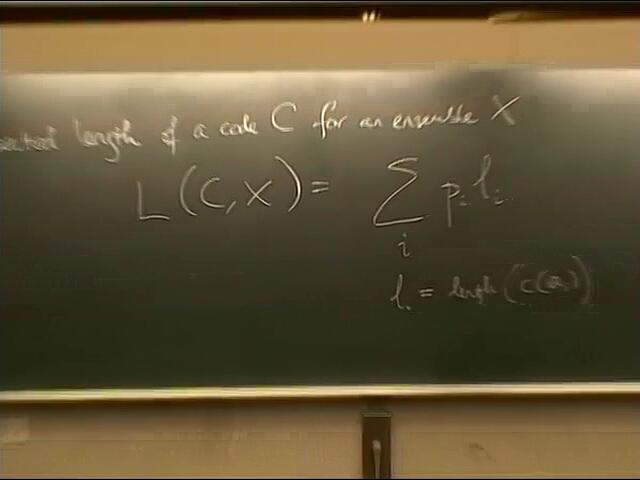 length of a code C for an ensemble X
L(C,X) = ∑ pᵢ lᵢ
i
lᵢ = length (C(aᵢ))